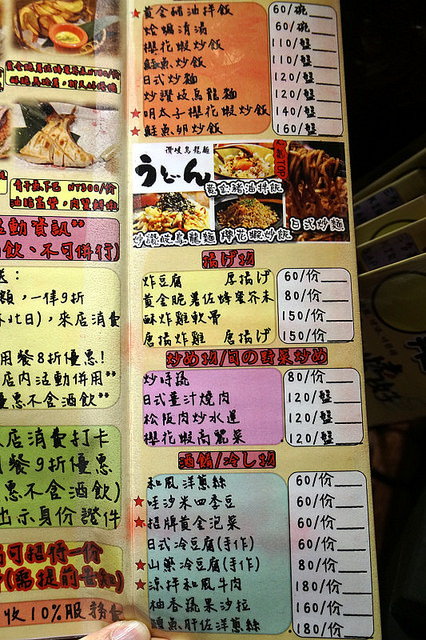 黃金豬油拌飯 60/碗
60/碗
櫻花蝦炒飯 110/盤
鮭魚炒飯 110/盤
日式炒麵 120/盤
炒讚岐烏龍麵 120/盤
明太子櫻花蝦炒飯 140/盤
鮭魚卵炒飯 160/盤
讚岐烏龍麵
うどん
黃金豬油拌飯
炒讚岐烏龍麵
櫻花蝦炒飯
日式炒麵
揚げ物
炸豆腐 厚揚げ 60/份
黃金脆薯佐蜂蜜芥末 80/份
酥炸雞軟骨 150/份
唐揚炸雞 唐揚げ 150/份
炒め物/旬の野菜炒め
炒時蔬 80/份
日式薑汁燒肉 120/盤
松阪肉炒水蓮 120/盤
櫻花蝦高麗菜 120/盤
酒餚/冷し物
和風洋蔥絲 60/份
哇沙米四季豆 60/份
招牌黃金泡菜 60/份
日式冷豆腐(手作) 60/份
山藥冷豆腐(手作) 80/份
涼拌和風牛肉 180/份
柚香蔬果沙拉 160/份
鮪魚肝佐洋蔥絲 180/份
NT300/份
動資訊
飲、不可併行)
,一律9折
日),來店消費
用餐8折優惠!
店內活動併用**
惠不含酒飲**
店消費打卡
餐9折優惠
惠不含酒飲)
出示身份證件
可招待一份
收10%服務